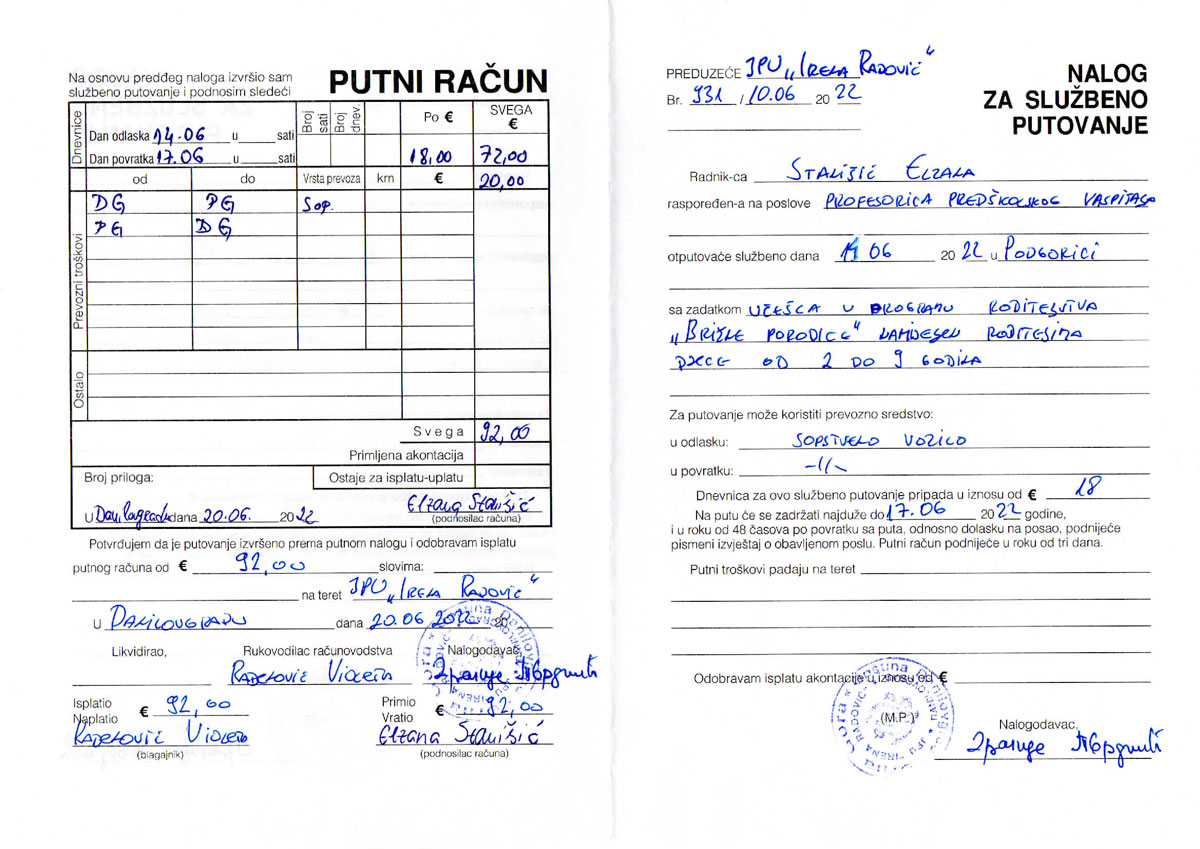 Na osnovu predđeg naloga izvršio sam
službeno putovanje i podnosim sledeći
PUTNI RAČUN
Dnevnice
Dan odlaska 14.06 u sati
Dan povratka 17.06 u sati
Broj sati
Broj dnev.
Po €
SVEGA €
18,00 72,00
od do Vrsta prevoza km € 20,00
Prevozni troškovi
DG PG Sop.
PG DG
Ostalo
Svega 92,00
Primljena akontacija
Broj priloga: Ostaje za isplatu-uplatu
U Danilogradu dana 20.06. 2022 Elzana Stanišić
(podnosilac računa)
Potvrđujem da je putovanje izvršeno prema putnom nalogu i odobravam isplatu
putnog računa od € 92,00 slovima:
na teret JPU „Irena Radović“
U DANILOVGRADU dana 20.06 2022 20
Likvidirao, Rukovodilac računovodstva Nalogodavac,
RADENOVIĆ VIOLETA
Isplatio
Naplatio € 92,00
Primio
Vratio € 92,00
RADENOVIĆ VIOLETA Elzana Stanišić
(blagajnik) (podnosilac računa)
PREDUZEĆE JPU „IRENA RADOVIĆ“
Br. 931 / 10.06 2022
NALOG
ZA SLUŽBENO
PUTOVANJE
Radnik-ca STANIŠIĆ ELZANA
raspoređen-a na poslove PROFESORICA PREDŠKOLSKOG VASPITANJA
otputovaće službeno dana 14 06 2022 u PODGORICI
sa zadatkom UČEŠĆA U PROGRAMU RODITELJSTVA
„BRIŽNE PORODICE“ NAMIJENJEN RODITELJIMA
DJECE OD 2 DO 9 GODINA
Za putovanje može koristiti prevozno sredstvo:
u odlasku: SOPSTVENO VOZILO
u povratku: -//-
Dnevnica za ovo službeno putovanje pripada u iznosu od € 18
Na putu će se zadržati najduže do 17.06 2022 godine,
i u roku od 48 časova po povratku sa puta, odnosno dolasku na posao, podnijeće
pismeni izvještaj o obavljenom poslu. Putni račun podnijeće u roku od tri dana.
Putni troškovi padaju na teret
Odobravam isplatu akontacije u iznosu od €
(M.P.)
Nalogodavac,